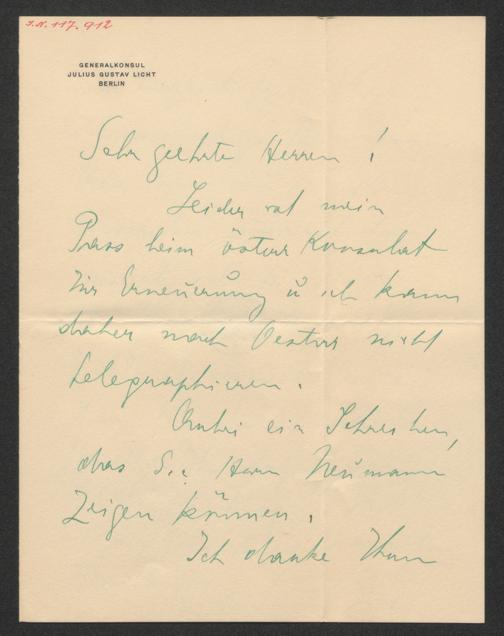 I.N. 117.912
GENERALKONSUL
JULIUS GUSTAV LICHT
BERLIN
Sehr geehrte Herren!
Leider ist mein
Pass beim österr Konsulat
zur Erneuerung u ich kann
daher nach Oesterr nicht
telegraphieren.
Anbei ein Schreiben,
das Sie Herrn Neumann
zeigen können.
Ich danke Ihnen